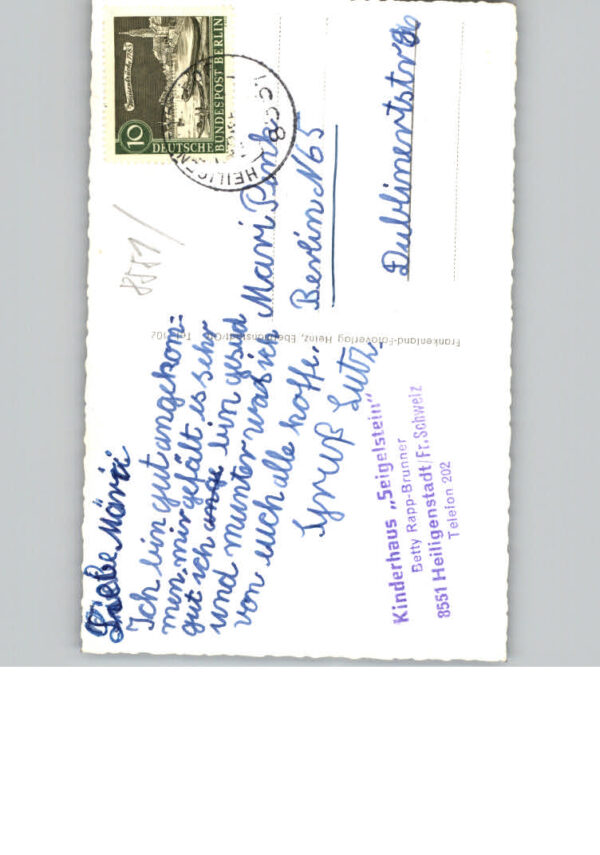 Liebe Mari
Ich bin gut angekom=
men, mir gefällt es sehr
gut ich bin gesud
und munter was ich
von euch alle hoffe.
Gruß Lutz
Kinderhaus „Seigelstein"
Betty Rapp-Brunner
8551 Heiligenstadt/Fr. Schweiz
Telefon 202
Frankenland-Fotoverlag Heinz,
8551/
10
DEUTSCHE BUNDESPOST BERLIN
HEILIGEN
Mari Pink
Berlin N65
Dublinerstr